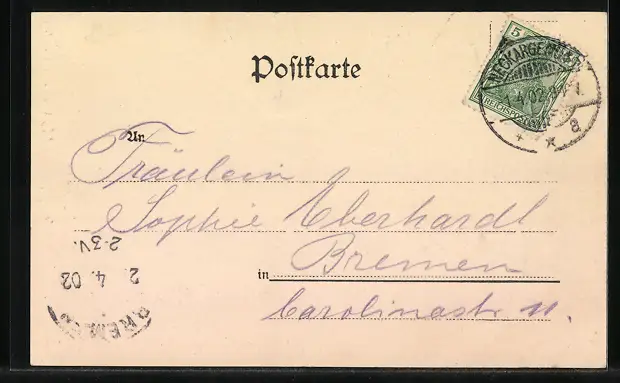 Postkarte
5
NECKARGEMÜND
1.4.02
REICHSPOST
* a
An
Fräulein
Sophie Eberhardt
in Bremen
Carolinastr 11.
BREMEN
2. 4. 02
2-3V.